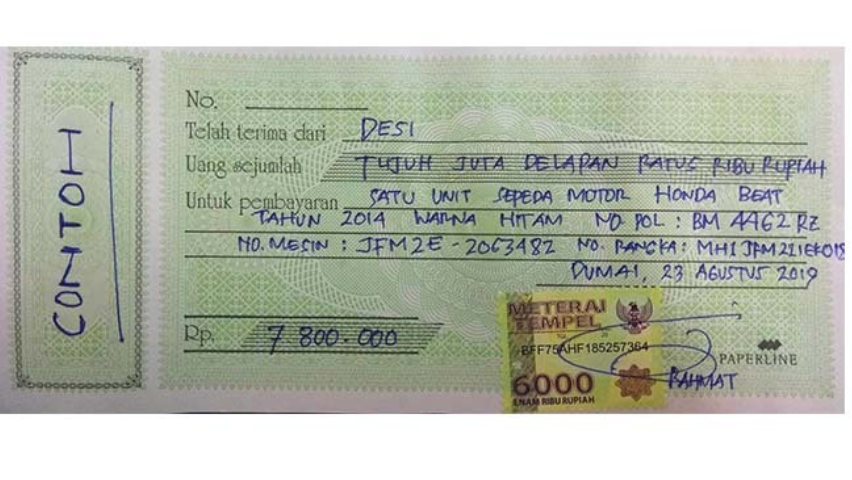 CONTOH
No.
Telah terima dari DESI
Uang sejumlah TUJUH JUTA DELAPAN RATUS RIBU RUPIAH
Untuk pembayaran SATU UNIT SEPEDA MOTOR HONDA BEAT
TAHUN 2014 WARNA HITAM NO POL : BM 4462 RZ
NO. MESIN : JFM2E - 2063482 NO. RANGKA :
DUMAI, 23 AGUSTUS 2019
Rp. 7.800.000
METERAI
TEMPEL
BFF75AHF185257364
6000
ENAM RIBU RUPIAH
RAHMAT
PAPERLINE